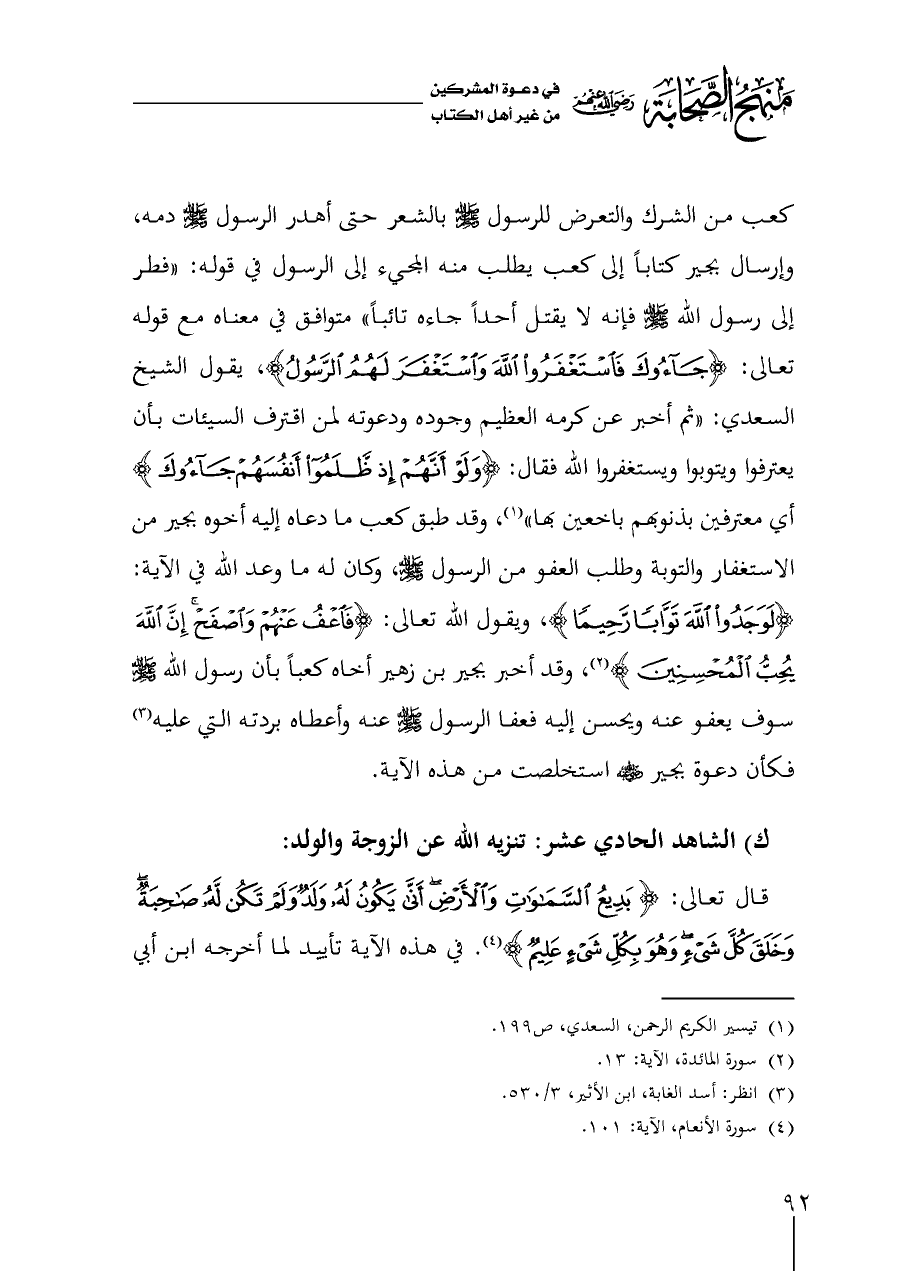 منهج الصحابة رضي الله عنهم
في دعوة المشركين
من غير أهل الكتاب
كعب من الشرك والتعرض للرسول ﷺ بالشعر حتى أهدر الرسول ﷺ دمه،
وإرسال بجير كتاباً إلى كعب يطلب منه المجيء إلى الرسول في قوله: «فطر
إلى رسول الله ﷺ فإنه لا يقتل أحداً جاءه تائباً» متوافق في معناه مع قوله
تعالى: ﴿جَآءُوكَ فَٱسْتَغْفَرُوا۟ ٱللَّهَ وَٱسْتَغْفَرَ لَهُمُ ٱلرَّسُولُ﴾، يقول الشيخ
السعدي: «ثم أخبر عن كرمه العظيم وجوده ودعوته لمن اقترف السيئات بأن
يعترفوا ويتوبوا ويستغفروا الله فقال: ﴿وَلَوْ أَنَّهُمْ إِذ ظَّلَمُوٓا۟ أَنفُسَهُمْ جَآءُوكَ﴾
أي معترفين بذنوبهم باخعين بها»(١)، وقد طبق كعب ما دعاه إليه أخوه بجير من
الاستغفار والتوبة وطلب العفو من الرسول ﷺ، وكان له ما وعد الله في الآية:
﴿لَوَجَدُوا۟ ٱللَّهَ تَوَّابًا رَّحِيمًا﴾، ويقول الله تعالى: ﴿فَٱعْفُ عَنْهُمْ وَٱصْفَحْ ۚ إِنَّ ٱللَّهَ
يُحِبُّ ٱلْمُحْسِنِينَ﴾(٢)، وقد أخبر بجير بن زهير أخاه كعباً بأن رسول الله ﷺ
سوف يعفو عنه ويحسن إليه فعفا الرسول ﷺ عنه وأعطاه بردته التي عليه(٣)
فكأن دعوة بجير رضي الله عنه استخلصت من هذه الآية.
ك) الشاهد الحادي عشر: تنزيه الله عن الزوجة والولد:
قال تعالى: ﴿بَدِيعُ ٱلسَّمَٰوَٰتِ وَٱلْأَرْضِ ۖ أَنَّىٰ يَكُونُ لَهُۥ وَلَدٌ وَلَمْ تَكُن لَّهُۥ صَٰحِبَةٌ ۖ
وَخَلَقَ كُلَّ شَىْءٍ ۖ وَهُوَ بِكُلِّ شَىْءٍ عَلِيمٌ﴾(٤). في هذه الآية تأييد لما أخرجه ابن أبي
(١) تيسير الكريم الرحمن، السعدي، ص١٩٩.
(٢) سورة المائدة، الآية: ١٣.
(٣) انظر: أسد الغابة، ابن الأثير، ٥٣٠/٣.
(٤) سورة الأنعام، الآية: ١٠١.
٩٢